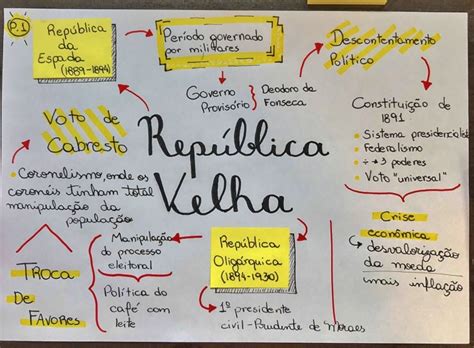 P.1
República
da
Espada
(1889-1894)
Período governado
por militares
Descontentamento
Político
Governo
Provisório
Deodoro da
Fonseca
Constituição de
1891
• Sistema presidencialista
• Federalismo
• ÷ → 3 poderes
• Voto "universal"
Voto de
Cabresto
• Coronelismo, onde os
coronéis tinham total
manipulação da
população
República
Velha
Crise
econômica
desvalorização
da moeda
mais inflação
Manipulação
do processo
eleitoral
República
Oligárquica
(1894-1930)
Troca
De
Favores
Política do
café com
leite
1º presidente
civil-Prudente de Moraes